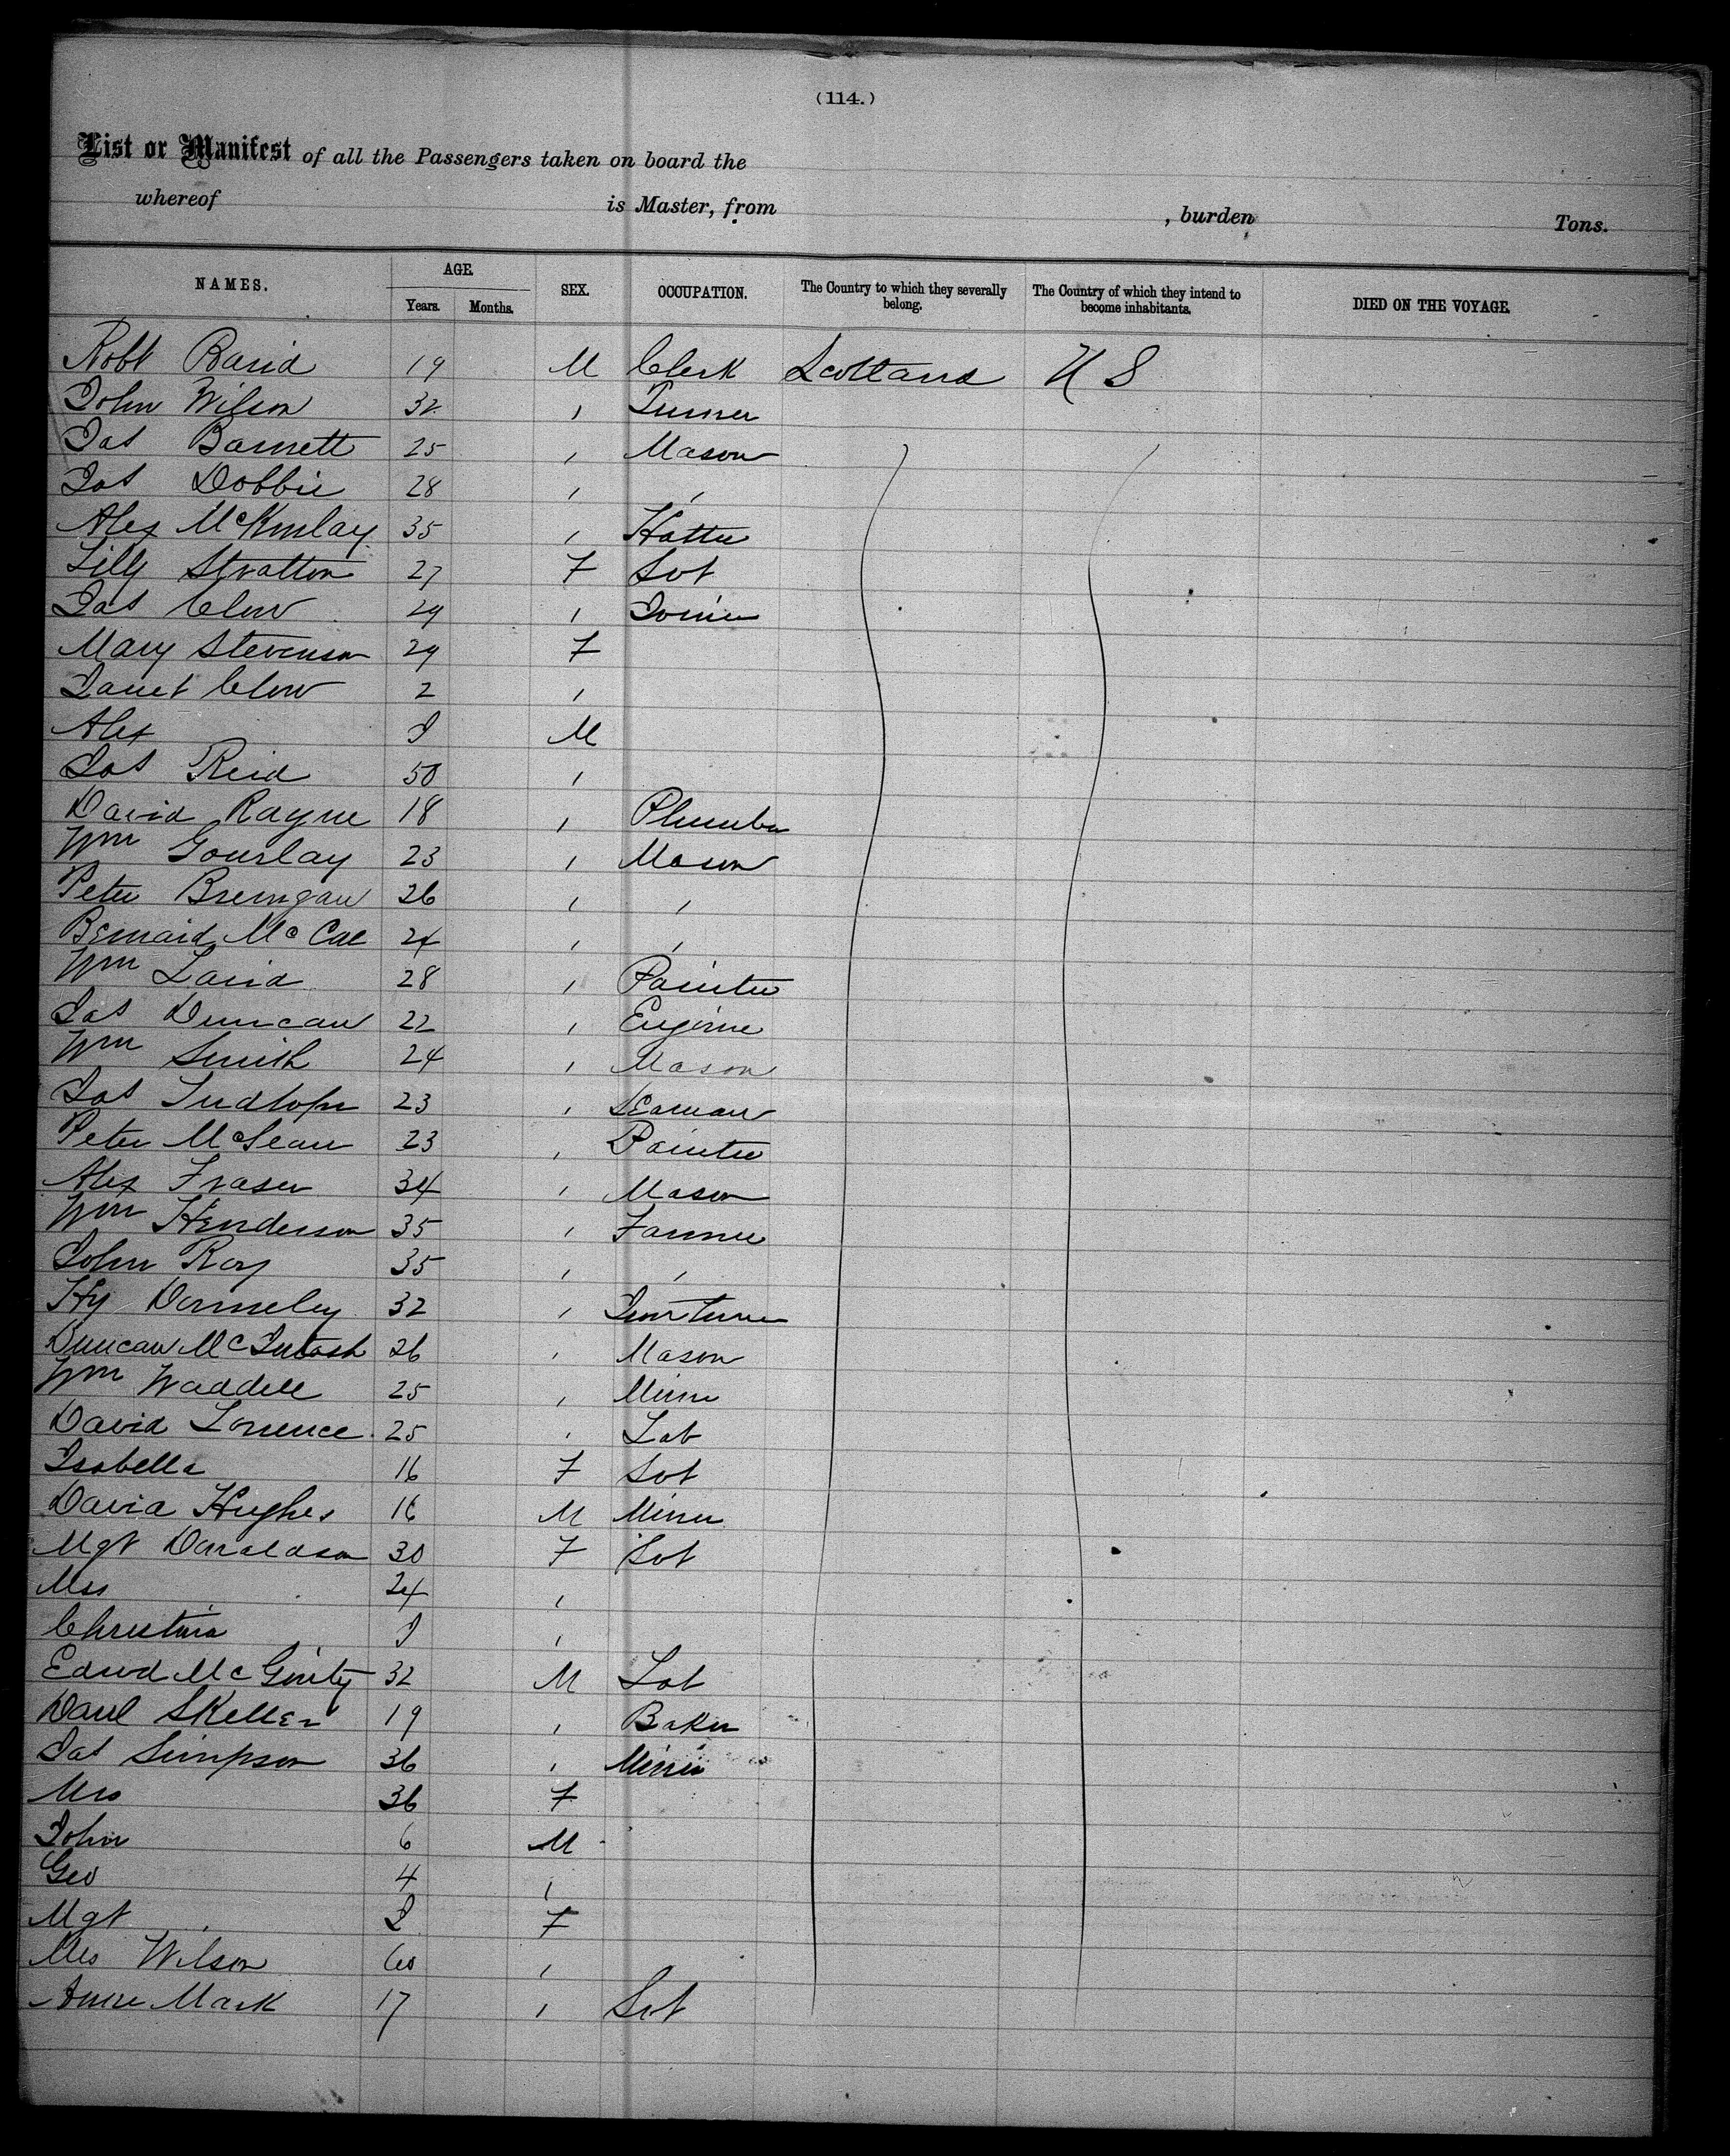 (114.)
List or Manifest of all the Passengers taken on board the
whereof is Master, from , burden Tons.
NAMES. AGE. SEX. OCCUPATION. The Country to which they severally belong. The Country of which they intend to become inhabitants. DIED ON THE VOYAGE.
Years. Months.
Robt Baird 19 M Clerk Scotland U S
John Wilson 32 , Turner
Jas Barnett 25 , Mason
Jas Dobbie 28 , ,
Alex McKinlay 35 , Hatter
Lilly Stratton 27 F Svt
Jas Clow 29 , Joiner
Mary Stevenson 29 F
Janet Clow 2 ,
Alex M
Jas Reid 50 ,
David Rayne 18 , Plumber
Wm Gourlay 23 , Mason
Peter 26 , ,
Bernard McCae 24 , ,
Wm Laird 28 , Painter
Jas Duncan 22 , Engine
Wm Smith 24 , Mason
Jas 23 , Seaman
Peter McLean 23 , Painter
Alex Fraser 34 , Mason
Wm Henderson 35 , Farmer
John Roy 35 , ,
Hy Donneley 32 ,
Duncan McIntosh 26 , Mason
Wm Waddell 25 , Miner
David Lorrence 25 , Lab
Isabella 16 F Svt
David Hughes 16 M Miner
Mgt Donaldson 30 F Svt
Mrs 24 ,
Christina ,
Edwd McGinty 32 M Lab
Danl Skellen 19 , Baker
Jas Simpson 36 , Miner
Mrs 36 F
John 6 M
Geo 4 ,
Mgt 2 F
Mrs Wilson 60 ,
Annie Mack 17 , Svt